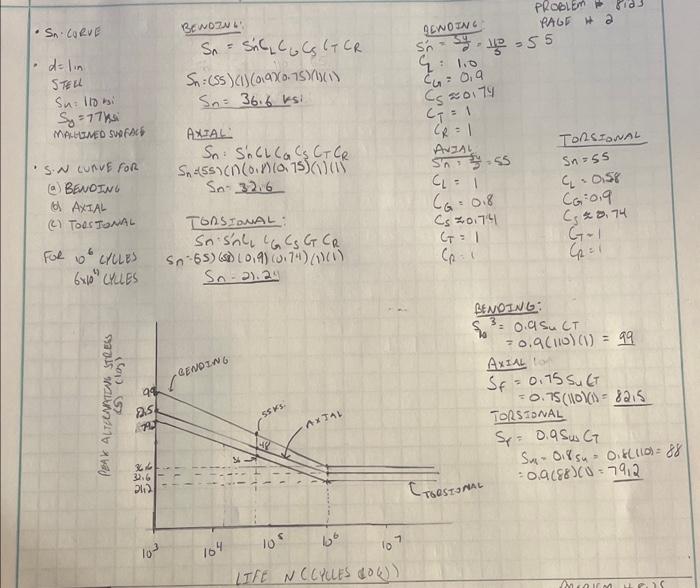 PROBLEM # 8.23
PAGE # 2
• Sn-CURVE
• d=1in
STEEL
Su=110 ksi
Sy=77ksi
MACHINED SURFACE
• S-N CURVE FOR
(a) BENDING
(b) AXIAL
(c) TORSIONAL
FOR 10⁶ CYCLES
6x10⁴ CYCLES
BENDING:
Sn = S'n CL CG CS CT CR
Sn=(55)(1)(0.9)(0.75)(1)(1)
Sn= 36.6 ksi
AXIAL:
Sn= S'n CL CG CS CT CR
Sn=(55)(1)(0.8)(0.75)(1)(1)
Sn= 32.6
TORSIONAL:
Sn=S'n CL CG CS CT CR
(0.9)(0.74)(1)(1)
Sn=21.24
BENDING:
S'n = Su/2 = 110/2 = 55
CL = 1.0
CG = 0.9
CS ≈ 0.74
CT = 1
CR = 1
AXIAL
S'n = Su/2 = 55
CL = 1
CG = 0.8
CS ≈ 0.74
CT = 1
CR = 1
TORSIONAL
Sn = 55
CL = 0.58
CG = 0.9
CS ≈ 0.74
CT = 1
CR = 1
BENDING:
= 0.9 Su CT
= 0.9(110)(1) = 99
AXIAL
Sf = 0.75 Su CT
= 0.75(110)(1) = 82.5
TORSIONAL
Sf = 0.9 Sus CT
= 0.8 Su = 0.8(110) = 88
= 0.9(88)(1) = 79.2
PEAK ALTERNATING STRESS
(S) (log)
99
82.5
79.2
36.6
32.6
21.2
BENDING
55ksi
AXIAL
48
36
TORSIONAL
10³ 10⁴ 10⁵ 10⁶ 10⁷
LIFE N (CYCLES (LOG))